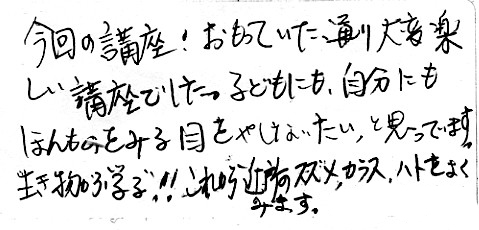 今回の講座!おもっていた通り大変楽
しい講座でした。子どもにも、自分にも
ほんものをみる目をやしないたい、と思っています。
生き物から学ぶ!!これから近所のスズメ、カラス、ハトをよく
みます。